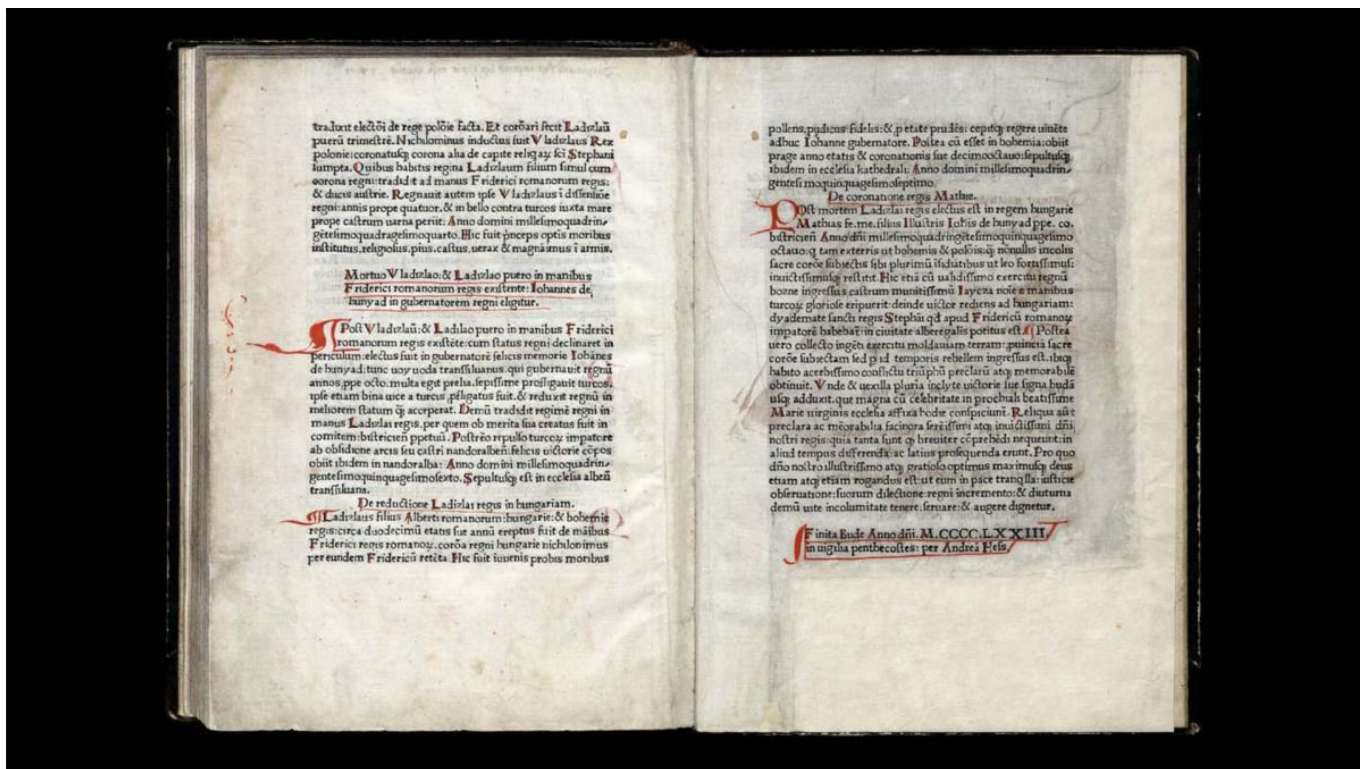 traduxit electõi de rege polõie facta. Et corõari fecit Ladizlaũ
puerũ trimestrẽ. Nichilominus inductus fuit Vladizlaus Rex
polonie: coronatusqꝫ corona alia de capite reliqaꝝ sci Stephani
sumpta. Quibus habitis regina Ladizlaum filium simul cum
corona regni: tradidit ad manus Friderici romanorum regis:
& ducis austrie. Regnauit autem ipse Vladizlaus ĩ dissensiõe
regni: annis prope quatuor. & in bello contra turcos iuxta mare
prope castrum uarna periit: Anno domini millesimoquadrin⸗
gẽtesimoquadragesimoquarto. Hic fuit princeps optis moribus
institutus, religiosus, pius, castus, uerax & magnãimus ĩ armis.
Mortuo Vladizlao: & Ladizlao puero in manibus
Friderici romanorum regis existente: Iohannes de
hunyad in gubernatorem regni eligitur.
Post Vladizlaũ: & Ladilao puero in manibus Friderici
romanorum regis existẽte: cum status regni declinaret in
periculum: electus fuit in gubernatorẽ felicis memorie Iohãnes
de hunyad: tunc uoyuoda transsiluanus. qui gubernauit regnũ
annos ꝓpe octo. multa egit prelia. sepissime profligauit turcos.
ipse etiam bina uice a turcis ꝓfligatus fuit. & reduxit regnũ in
meliorem statum qꝫ acceperat. Demũ tradidit regimẽ regni in
manus Ladizlai regis. per quem ob merita sua creatus fuit in
comitem: bistriciẽn ꝑpetuũ. Postrẽo repulso turcoꝝ impatore
ab obsidione arcis seu castri nandoralbeñ: felicis uictorie cõpos
obiit ibidem in nandoralba: Anno domini millesimoquadrin⸗
gentesimoquinquagesimosexto. Sepultusqꝫ est in ecclesia albeñ
transsiluana.
De reductione Ladizlai regis in hungariam.
Ladizlaus filius Alberti romanorum: hungarie: & bohemie
regis: circa duodecimũ etatis sue annũ ereptus fuit de mãibus
Friderici regis romanoꝝ. corõa regni hungarie nichilonimus
per eundem Fridericũ retẽta. Hic fuit iuuenis probis moribus
pollens, pudicus fidelis: & ꝓ etate prudẽs: cepitqꝫ regere uiuẽte
adhuc Iohanne gubernatore. Postea cũ esset in bohemia: obiit
prage anno etatis & coronationis sue decimooctauo: sepultusqꝫ
ibidem in ecclesia kathedrali. Anno domini millesimoquadrin⸗
gentesi moquinquagesimoseptimo.
De coronatione regis Mathie.
Post mortem Ladizlai regis electus est in regem hungarie
Mathias fe. me. filius Illustris Iohis de hunyad ppe. co.
bistriciẽn Anno dñi millesimoquadringẽtesimoquinquagesimo
octauo: q tam exterris ut bohemis & polõis: q̃ nõnullis incolis
sacre corõe subiectis sibi plurimũ ĩsidiatibus ut leo fortissimus:
inuictissimusqꝫ restitit. Hic etiã cũ ualidissimo exercitu regnũ
bozne ingressus castrum munitissimũ Iaycza noie e manibus
turcoꝝ gloriose eripuerit: deinde uictor rediens ad hungariam:
dyademate sancti regis Stephãi qd apud Fridericũ romanoꝝ
impatorẽ habebat̃: in ciuitate alberegalis potitus est. Postea
uero collecto ingẽti exercitu moldauiam terram: ꝓuinciã sacre
corõe subiectam sed ꝓ id temporis rebellem ingressus est. ibiqꝫ
habito acerbissimo conflictu triũphũ preclarũ atqꝫ memorabilẽ
obtinuit. Vnde & uexilla pluria inclyte uictorie sue signa budã
usqꝫ adduxit. que magna cũ celebritate in prochiali beatissime
Marie uirginis ecclesia affixa hodie conspiciunt̃. Reliqua aũt
preclara ac mẽorabilia facinora serẽissimi atqꝫ inuictissimi dñi
nostri regis: quia tanta sunt qꝫ breuiter cõprehẽdi nequeunt: in
aliud tempus differenda: ac latius prosequenda erunt. Pro quo
dño nostro illustrissimo atqꝫ gratioso optimus maximusqꝫ deus
etiam atqꝫ etiam rogandus est: ut eum in pace tranqlla: iusticie
obseruatione: suorum dilectione: regni incremento: & diuturna
demũ uite incolumitate tenere: seruare: & augere dignetur.
Finita Bude Anno dñi. M.CCCC.LXXIII
in uigilia penthecostes: per Andreã Hess.